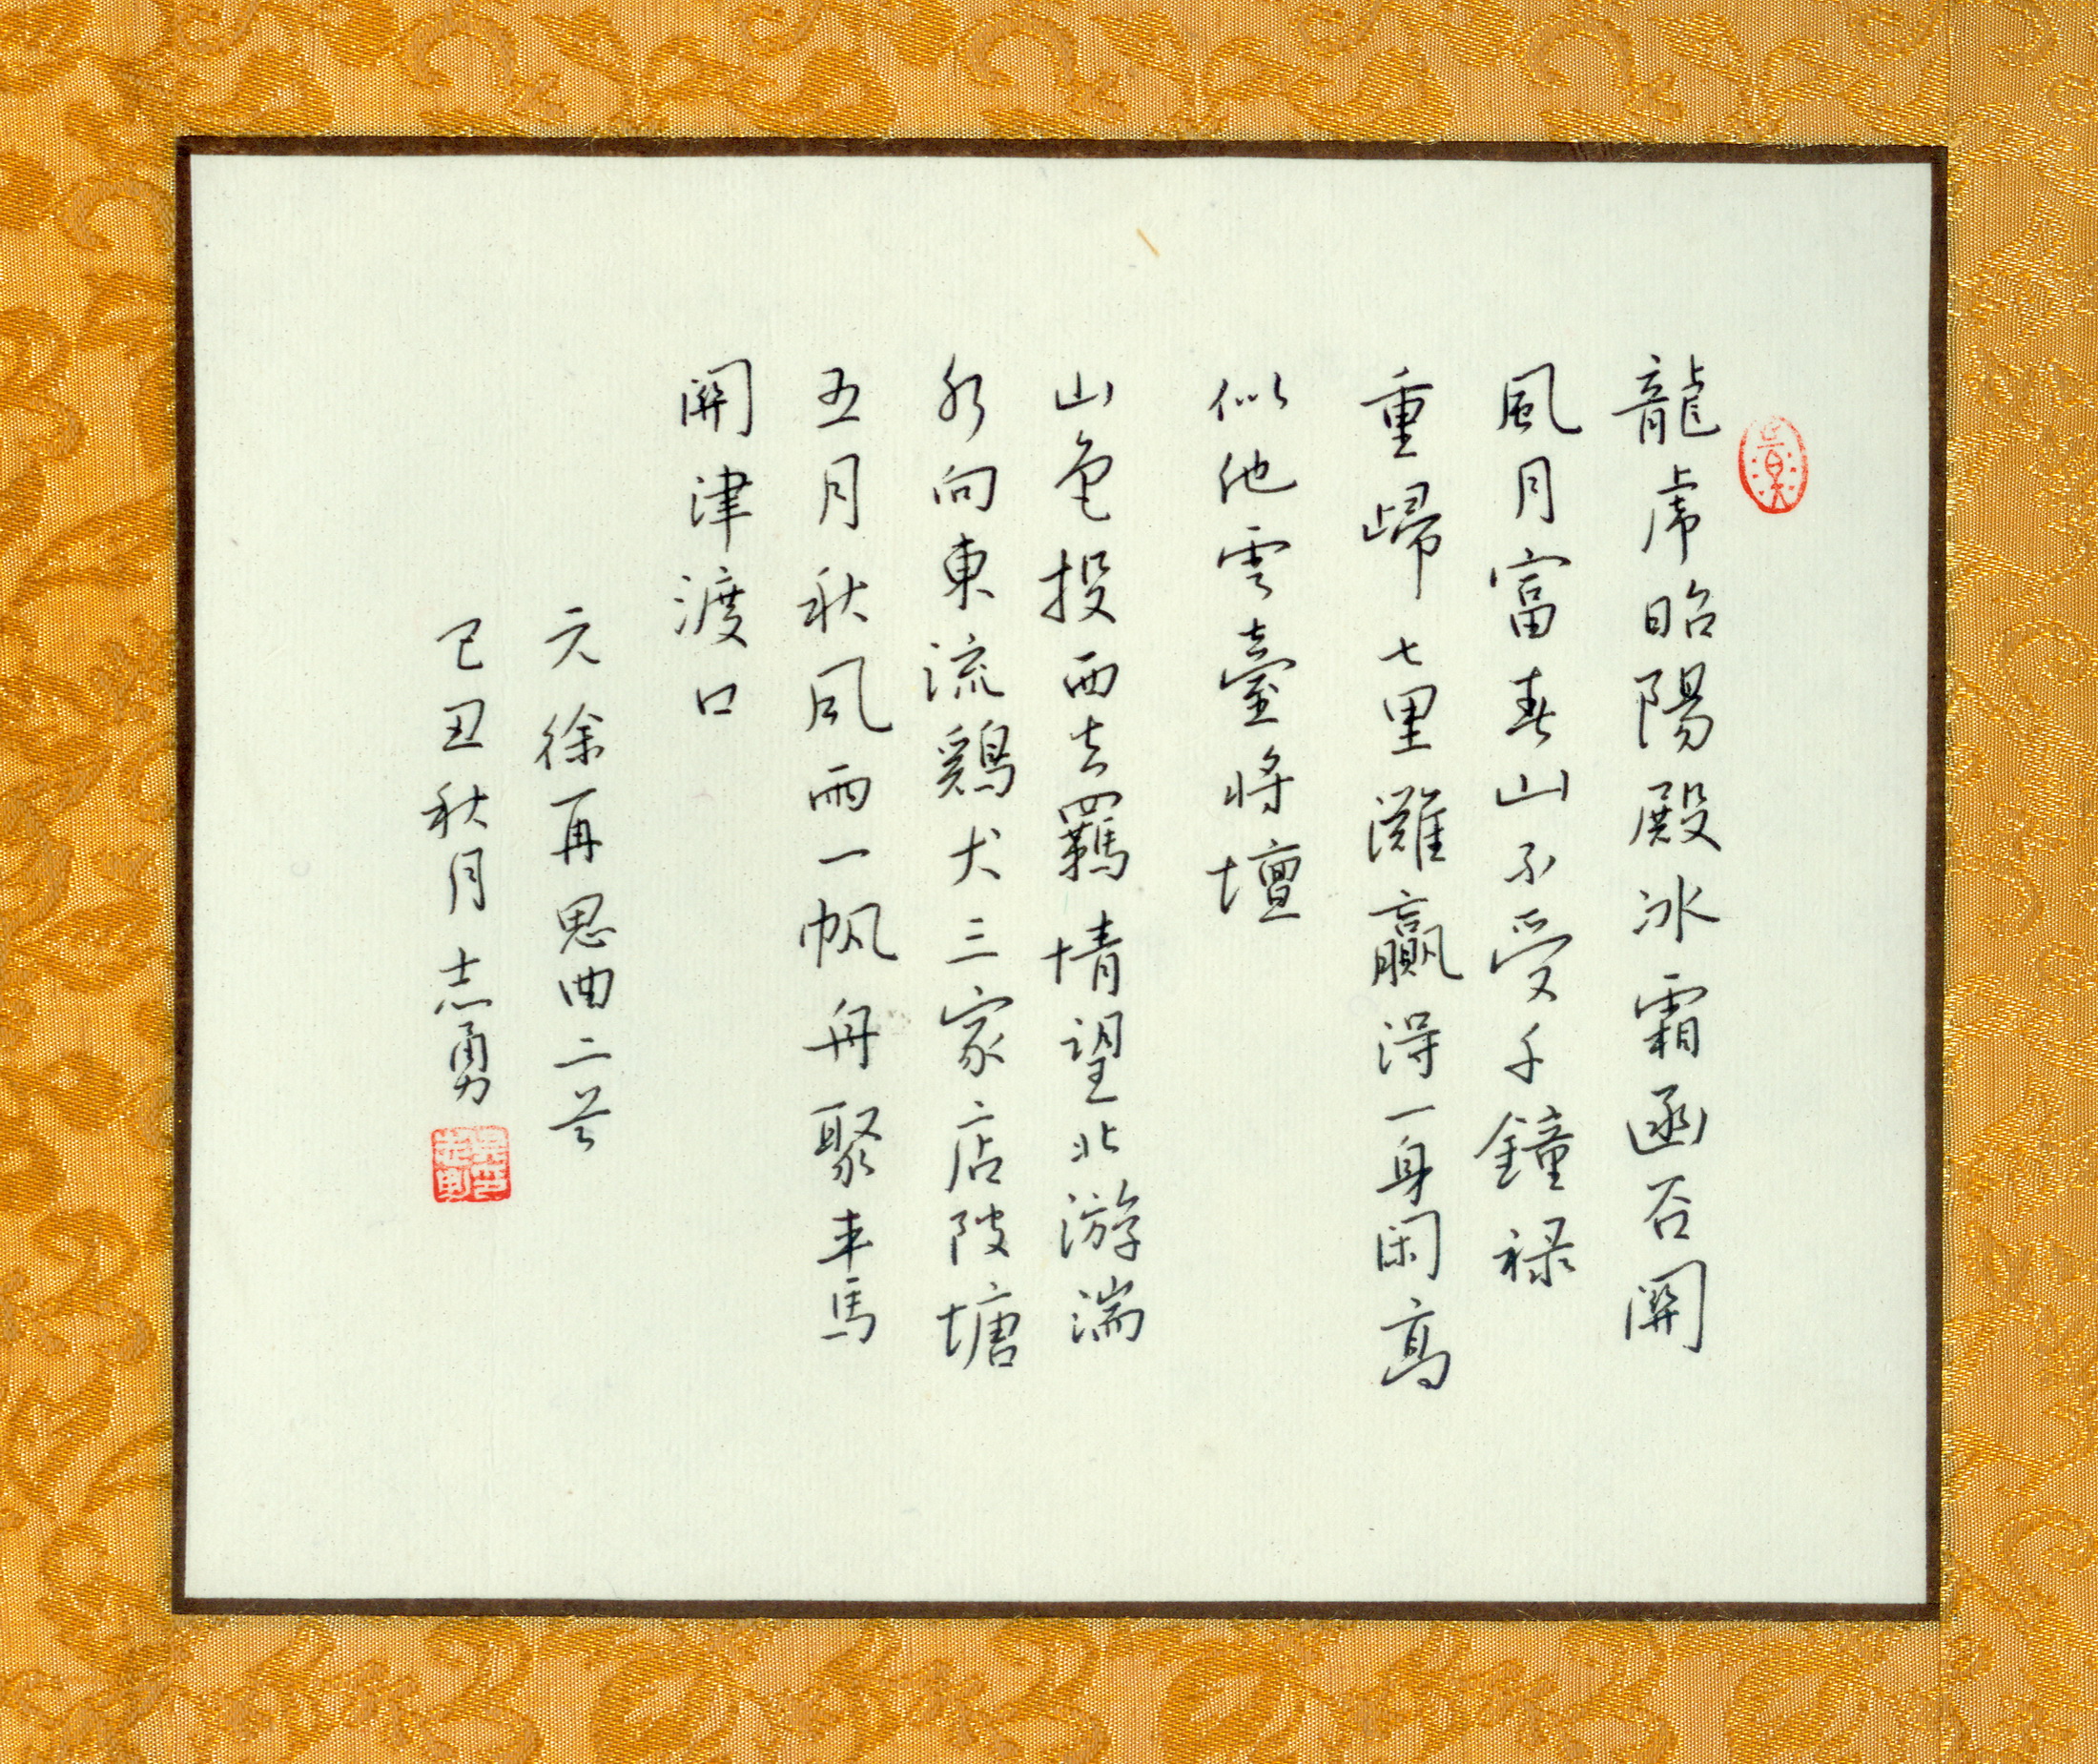 龍虎昭陽殿冰霜函谷關
風月富春山不受千鐘祿
重歸七里灘贏得一身閑高
似他雲臺將壇
山色投西去羈情望北游湍
水向東流鷄犬三家店陂塘
五月秋風雨一帆舟聚車馬
關津渡口
元徐再思曲二首
己丑秋月志勇